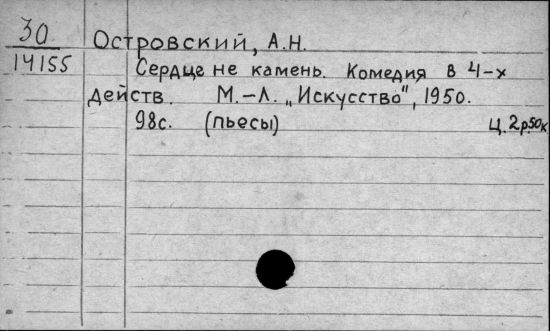 30
14155
Островский, А.Н.
Сердце не камень. Комедия в 4-х
действ. М.-Л. „Искусство", 1950.
98с. (пьесы) Ц. 2р.50к.